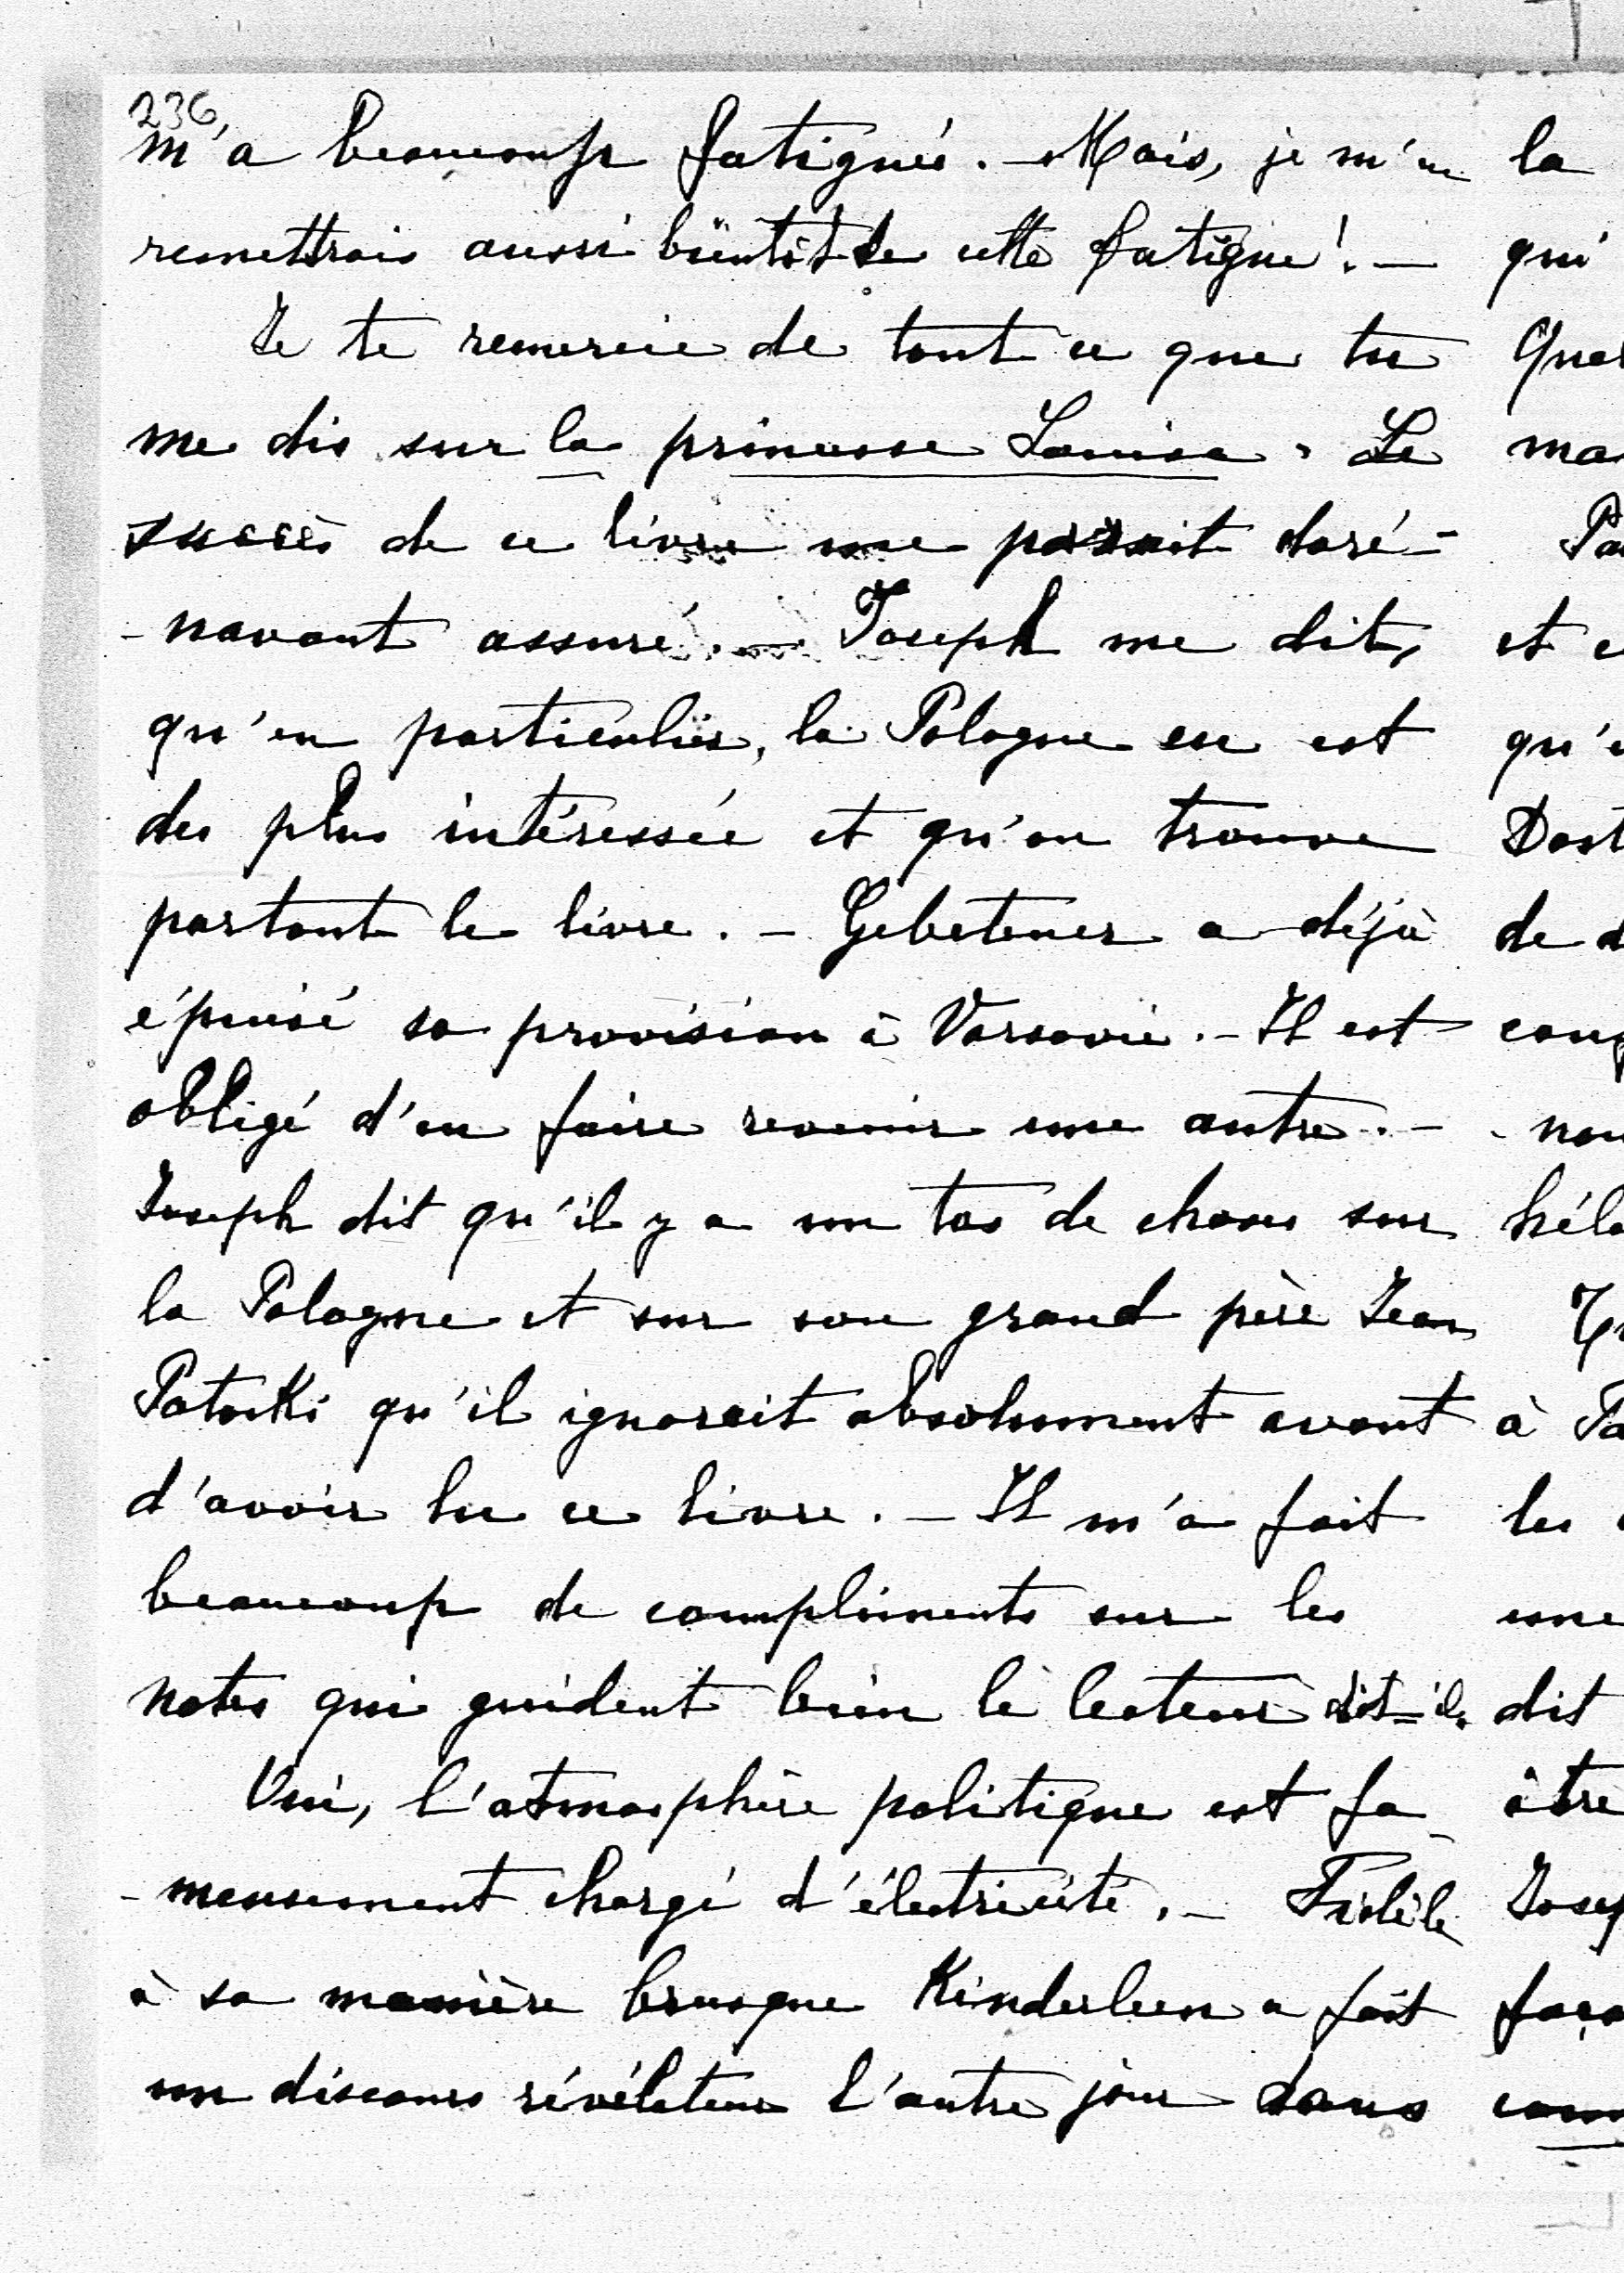 236,
m'a beaucoup fatigué. — Mais, je m'en
remettrais aussi bientôt de cette fatigue! —
Je te remercie de tout ce que tu
me dis sur la princesse Louise. Le
succès de ce livre me paraît doré-
-navant assuré. — Joseph me dit,
qu'en particulier, la Pologne en est
des plus intéressée et qu'on trouve
partout le livre. — Gebetener a déjà
épuisé sa provision à Varsovie. — Il est
obligé d'en faire revenir une autre. —
Joseph dit qu'il y a un tas de choses sur
la Pologne et sur son grand père Jean
Potocki qu'il ignorait absolument avant
d'avoir lu ce livre. — Il m'a fait
beaucoup de compliments sur les
notes qui guident bien le lecteur dit-il.
Oui, l'atmosphère politique est fa-
-meusement chargé d'électricité. — Fidèle
à sa manière brusque Kinderleen a fait
un discours révélateur l'autre jour dans
la
qui
ma
et
qu'
de
hélas
à
les
une
dit
être